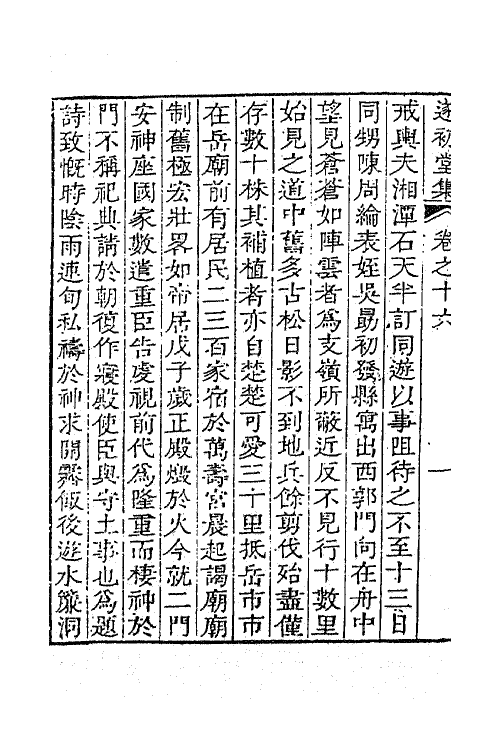 遂初堂集 卷之十六 一
戒輿夫湘潭石天半訂同遊以事阻待之不至十三日
同甥陳周綸表姪吳勗初發縣寓出西郭門向在舟中
望見蒼蒼如陣雲者爲支嶺所蔽近反不見行十數里
始見之道中舊多古松日影不到地兵餘剪伐殆盡僅
存數十株其補植者亦自楚楚可愛三十里抵岳市市
在岳廟前有居民二三百家宿於萬壽宮晨起謁廟廟
制舊極宏壯畧如帝居戊子歲正殿燬於火今就二門
安神座國家數遣重臣告虔視前代爲隆重而棲神於
門不稱祀典請於朝復作寢殿使臣與守土事也爲題
詩致慨時陰雨連旬私禱於神求開霽飯後遊水簾洞